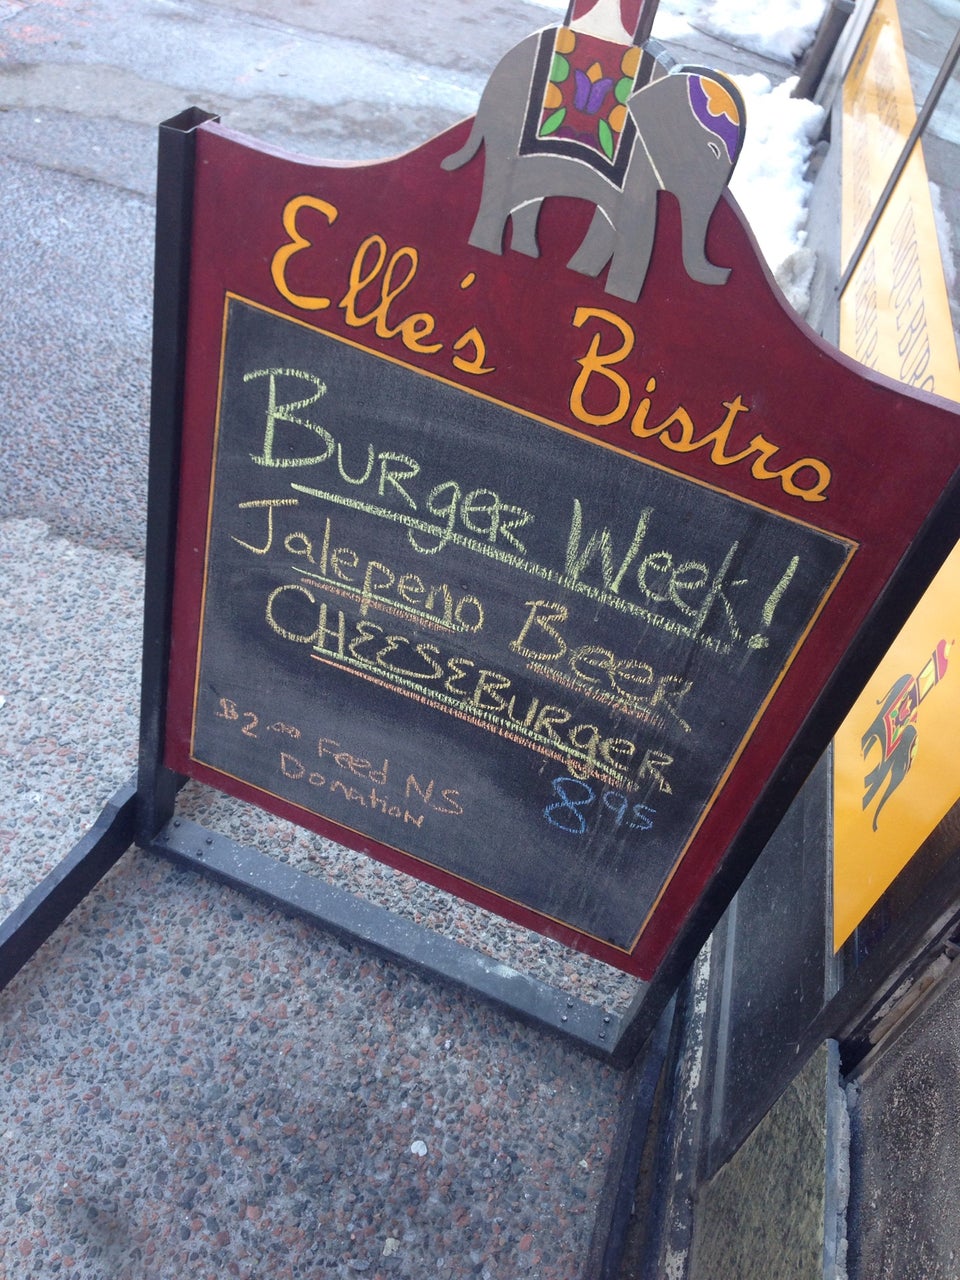 Elle's Bistro
Burger Week!
Jalepeno Beer
CHEESEBURGER
8.95
$2.00 Feed NS
Donation